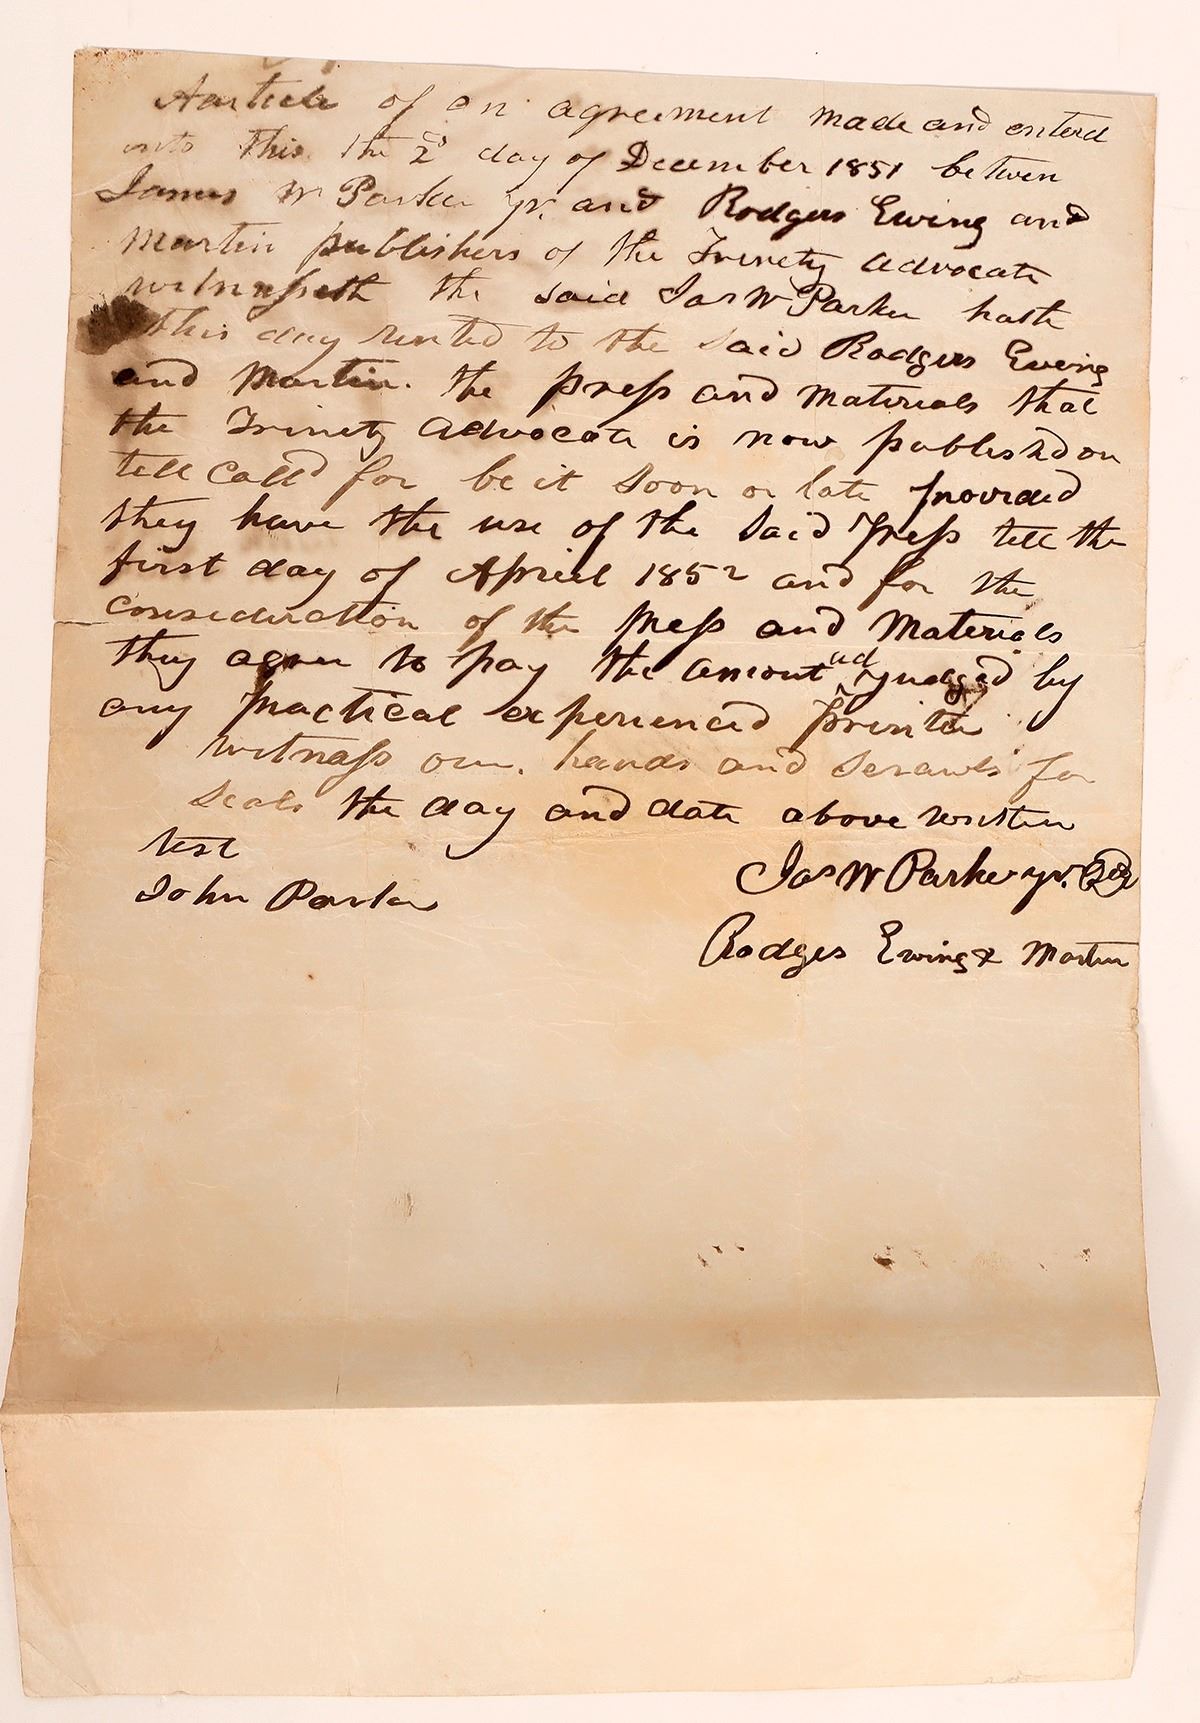 Aarticle of an agreement made and enterd
into this the 2d day of December 1851 between
James W Parker Jr. and Rodgers Ewing and
Martin publishers of the Trinety Advocate
witnesseth the said Jas W Parker hath
this day rented to the said Rodgers Ewing
and Martin. the press and materials that
the Trinety Advocate is now published on
tell calld for be it soon or late provided
they have the use of the said press tell the
first day of Apriel 1852 and for the
consideration of the press and Materials
they agree to pay the amount ad judged by
any practical experienced printer
witness our hands and scrawls for
seals the day and date above written
test
John Parker
Jas W Parker Jr.
Rodges Ewing & Martin